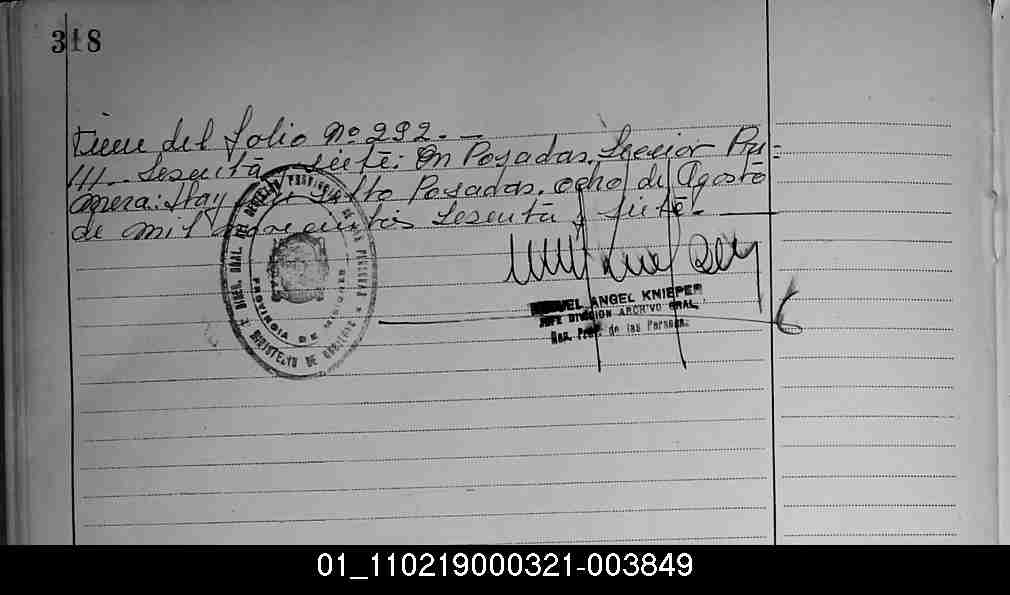 318
Viene del folio Nº 292.-
///-- Sesenta y siete: En Posadas, Sección Pri-
mera: Hay Sello Posadas, ocho de Agosto
de mil novecientos Sesenta y siete.-
ANGEL KNIEPER
JEFE DIVISION ARCHIVO GRAL.
Reg. Prov. de las Personas
PROVINCIA DE MISIONES
MINISTERIO DE GOBIERNO
01_110219000321-003849